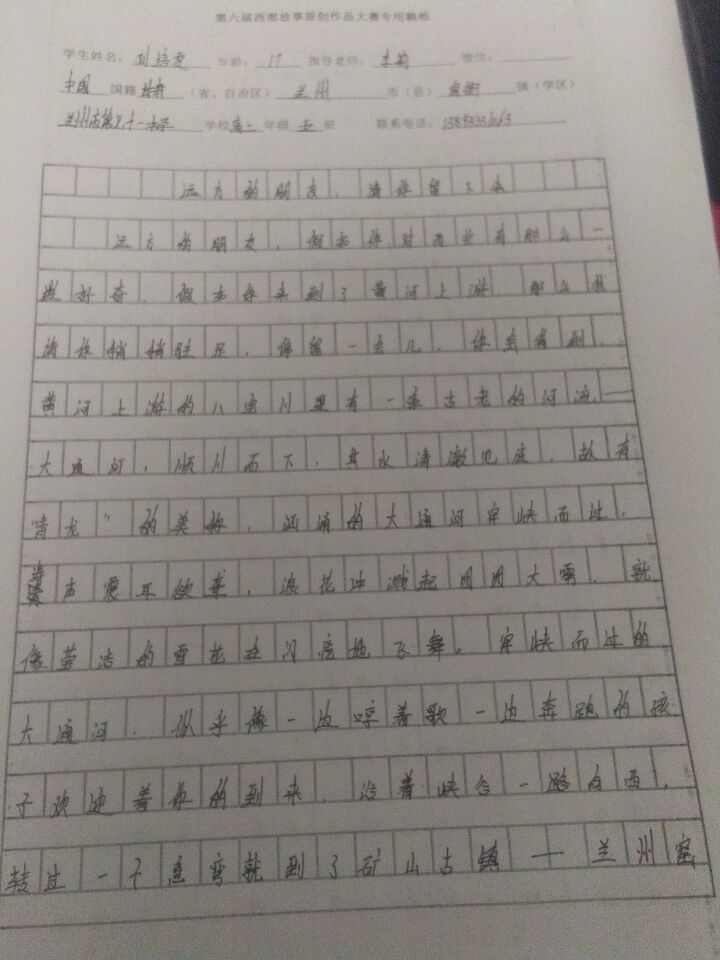 第六届西部故事原创作品大赛专用稿纸
学生姓名： 刘培 年龄： 17 指导老师： 李 微信：
中国 国籍 甘肃 （省、自治区） 兰州 市（县） 窑街 镇（学区）
兰州市第八十一中学 学校 高二 年级 五 班 联系电话：
远方的朋友，请你留下来
远方的朋友，假如你对西北有那么一
些好奇，假如你来到了黄河上游，那么我
请你稍稍驻足，停留一会儿，你会看到，
黄河上游的八宝川里有一条古老的河流——
大通河，顺川而下，其水清澈见底，故有
青龙”的美称，汹涌的大通河穿峡而过，
声震耳欲聋，浪花冲溅起团团大雾，就
像莹洁的雪花在闪亮地飞舞。穿峡而过的
大通河，似乎像一边哼着歌一边奔跑的孩
子欢迎着你的到来，沿着峡谷一路向西，
转过一个急弯就到了矿山古镇——兰州窑